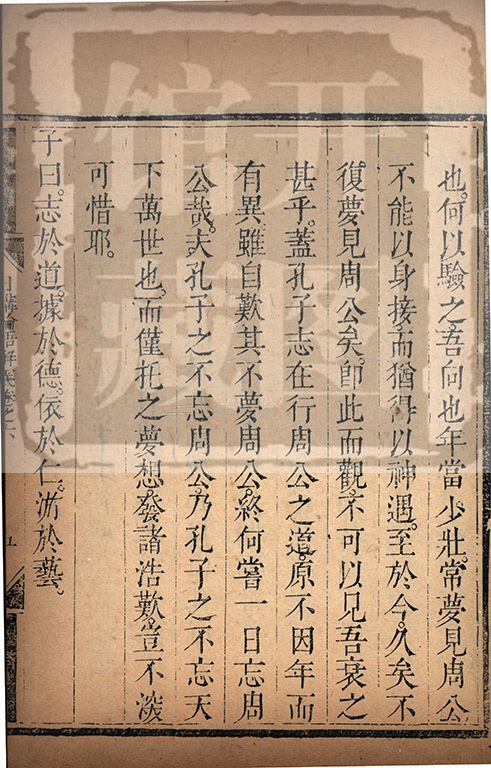 也。何以驗之。吾向也年當少壯。常夢見周公
不能以身接。而猶得以神遇。至於今。久矣不
復夢見周公矣。即此而觀。不可以見吾衰之
甚乎。蓋孔子志在行周公之道。原不因年而
有異。雖自歎其不夢周公。終何嘗一日忘周
公哉。夫孔子之不忘周公。乃孔子之不忘天
下萬世也。而僅托之夢想。發諸浩歎。豈不深
可惜耶。
子曰。志於道。據於德。依於仁。游於藝。